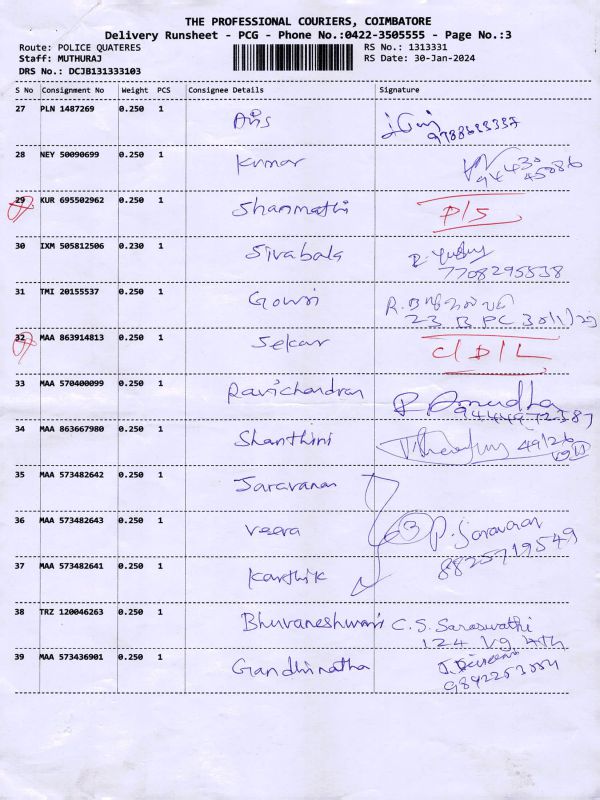 THE PROFESSIONAL COURIERS, COIMBATORE
Delivery Runsheet - PCG - Phone No.:0422-3505555 - Page No.:3
Route: POLICE QUATERES RS No.: 1313331
Staff: MUTHURAJ RS Date: 30-Jan-2024
DRS No.: DCJB131333103
S No Consignment No Weight PCS Consignee Details Signature
27 PLN 1487269 0.250 1
28 NEY 50090699 0.250 1 Kumar 94430
45086
29 KUR 695502962 0.250 1 Shanmathi P/S
30 IXM 505812506 0.230 1 Sivabala
7708295538
31 TMI 20155537 0.250 1 Gowri R.
23 B PC 30/1/
32 MAA 863914813 0.250 1 Sekar C/D/L
33 MAA 570400099 0.250 1 Ravichandran
34 MAA 863667980 0.250 1 Shanthini 49/26
35 MAA 573482642 0.250 1 Saravanan
36 MAA 573482643 0.250 1 Veera 3 P. Saravanan
8825719549
37 MAA 573482641 0.250 1 Karthik
38 TRZ 120046263 0.250 1 Bhuvaneshwari C. S. Saraswathi
124
39 MAA 573436901 0.250 1 Gandhinatha